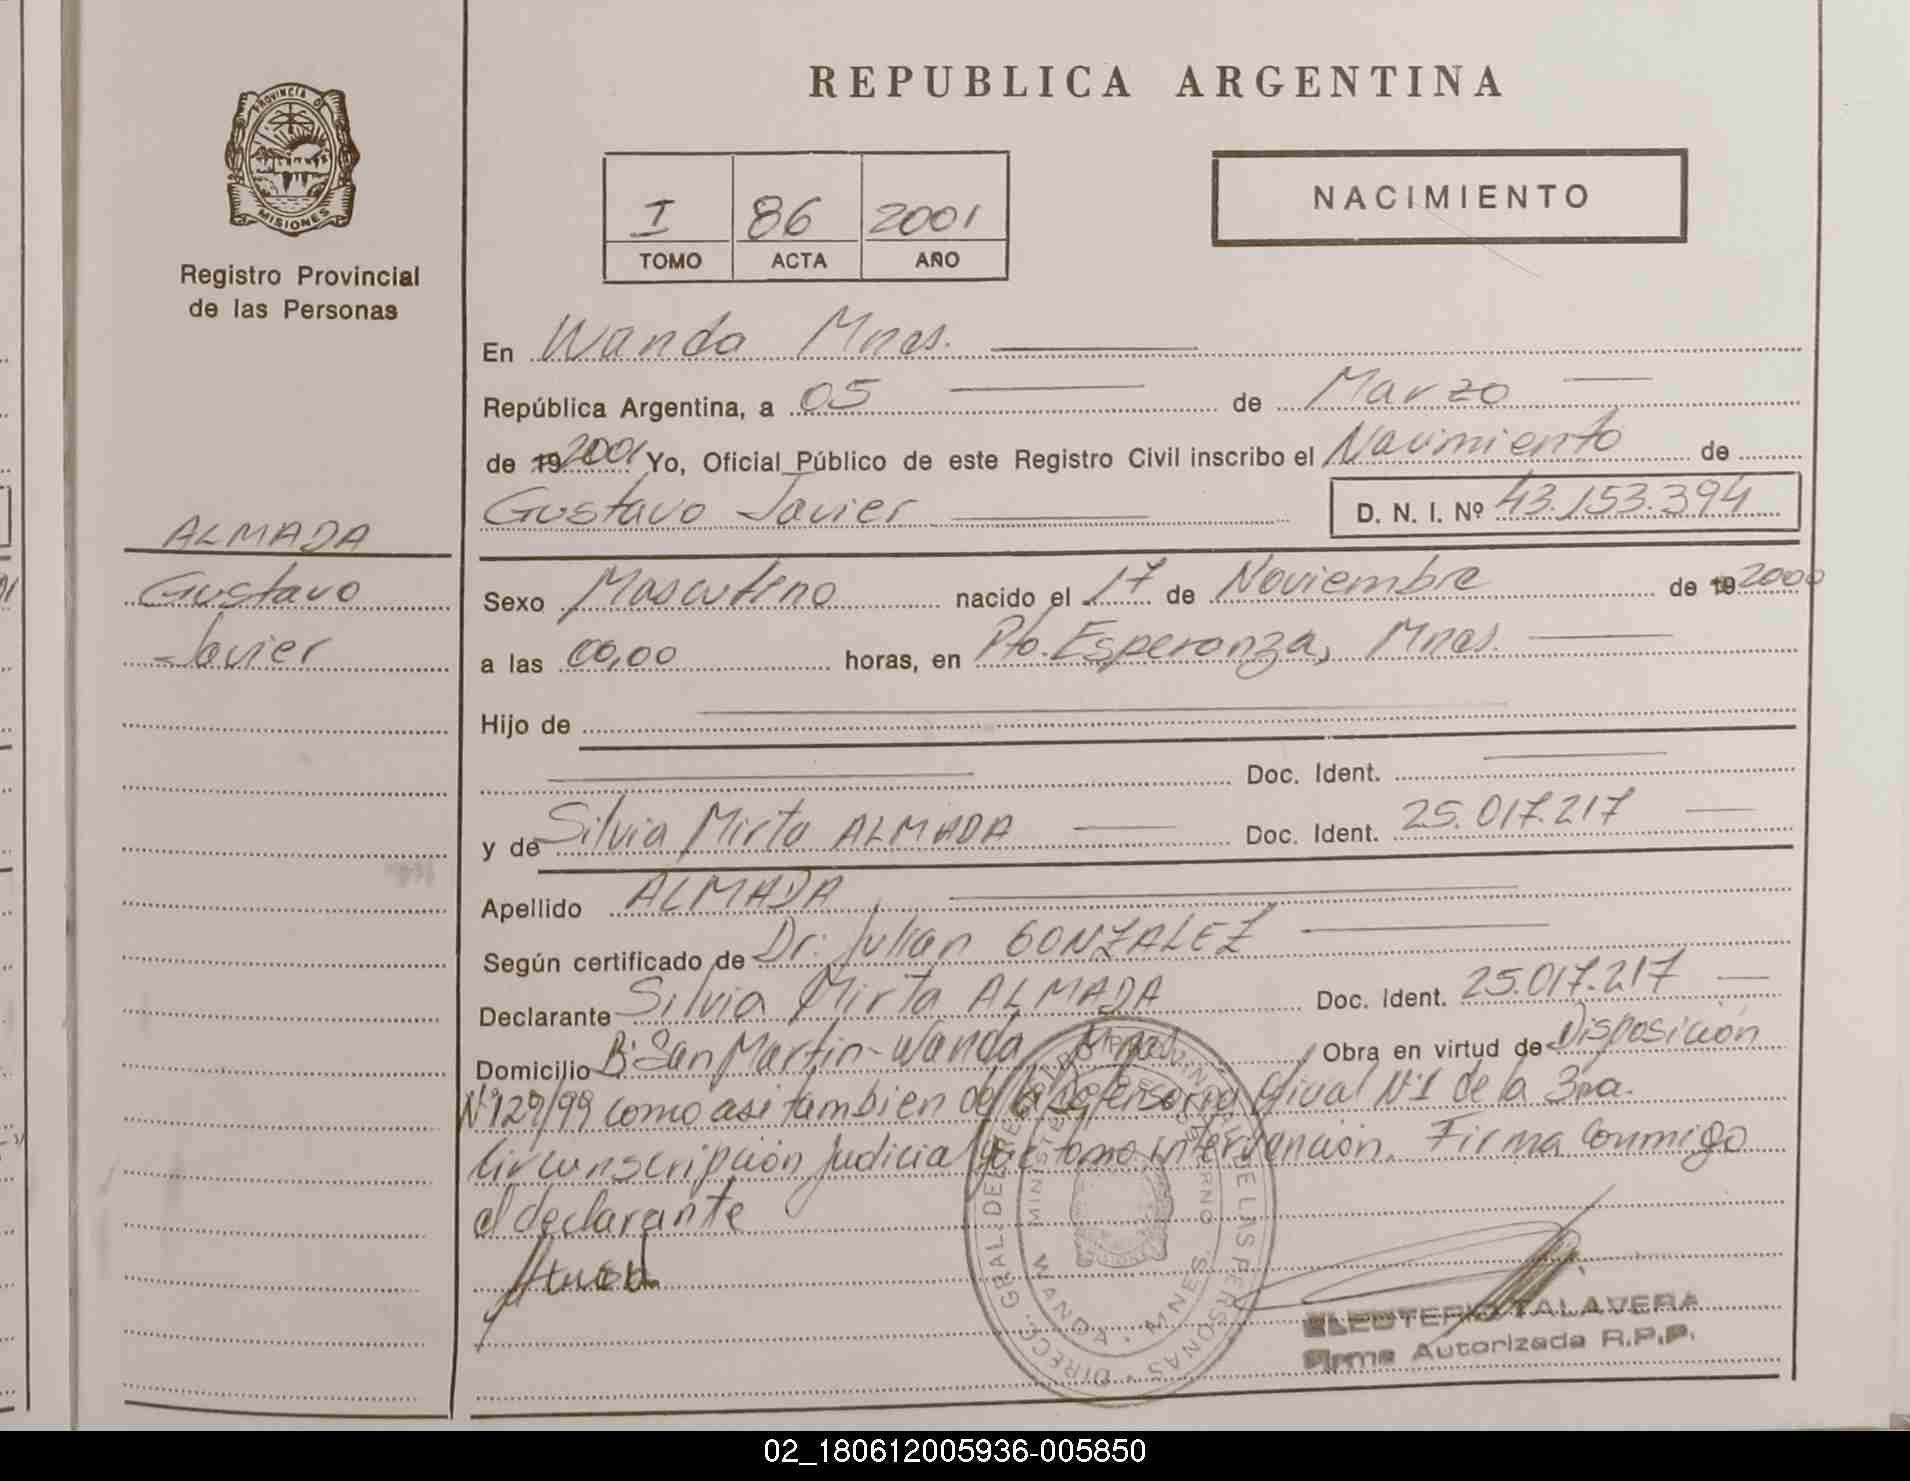 REPUBLICA ARGENTINA
PROVINCIA DE
MISIONES
Registro Provincial
de las Personas
I 86 2001
TOMO ACTA AÑO
NACIMIENTO
En Wanda Mnes.
República Argentina, a 05 de Marzo
de 19 2001 Yo, Oficial Público de este Registro Civil inscribo el Nacimiento de
Gustavo Javier D. N. I. Nº 43.153.394
ALMADA
Gustavo
Javier
Sexo Masculino nacido el 17 de Noviembre de 19 2000
a las 00,00 horas, en Pto. Esperanza, Mnes.
Hijo de
Doc. Ident.
y de Silvia Mirta ALMADA Doc. Ident. 25.017.217
Apellido ALMADA
Según certificado de Dr. Julian GONZALEZ
Declarante Silvia Mirta ALMADA Doc. Ident. 25.017.217
Domicilio Bº San Martin-Wanda Mnes. Obra en virtud de Disposición
Nº 129/99 como asi tambien de la Defensoria Oficial Nº1 de la 3ra.
Circunscripción Judicial que tomo intervención. Firma Conmigo
el declarante
DIRECC. GRAL. DE REGISTRO PROVINCIAL DE LAS PERSONAS
WANDA - MNES.
ELEUTERIO TALAVERA
Firma Autorizada R.P.P.
02_180612005936-005850